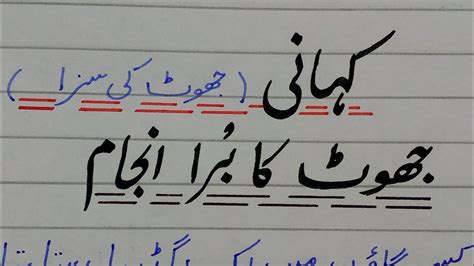 کہانی (جھوٹ کی سزا)
جھوٹ کا بُرا انجام
کسی گاؤں میں ایک